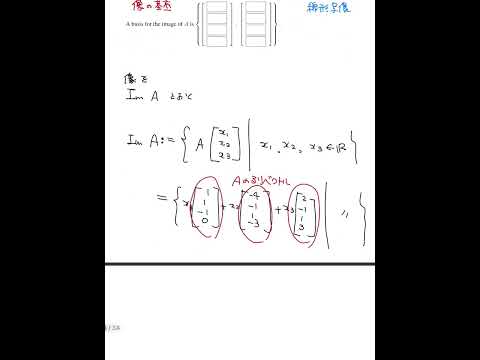 像の基底
線形写像
A basis for the image of A is
像を
Im A とおく
Im A := { A [x₁ x₂ x₃] | x₁, x₂, x₃ ∈ ℝ }
Aの列ベクトル
= { x₁ [1 1 -1 0] + x₂ [-4 -1 1 -3] + x₃ [2 -1 1 3] | 〃 }